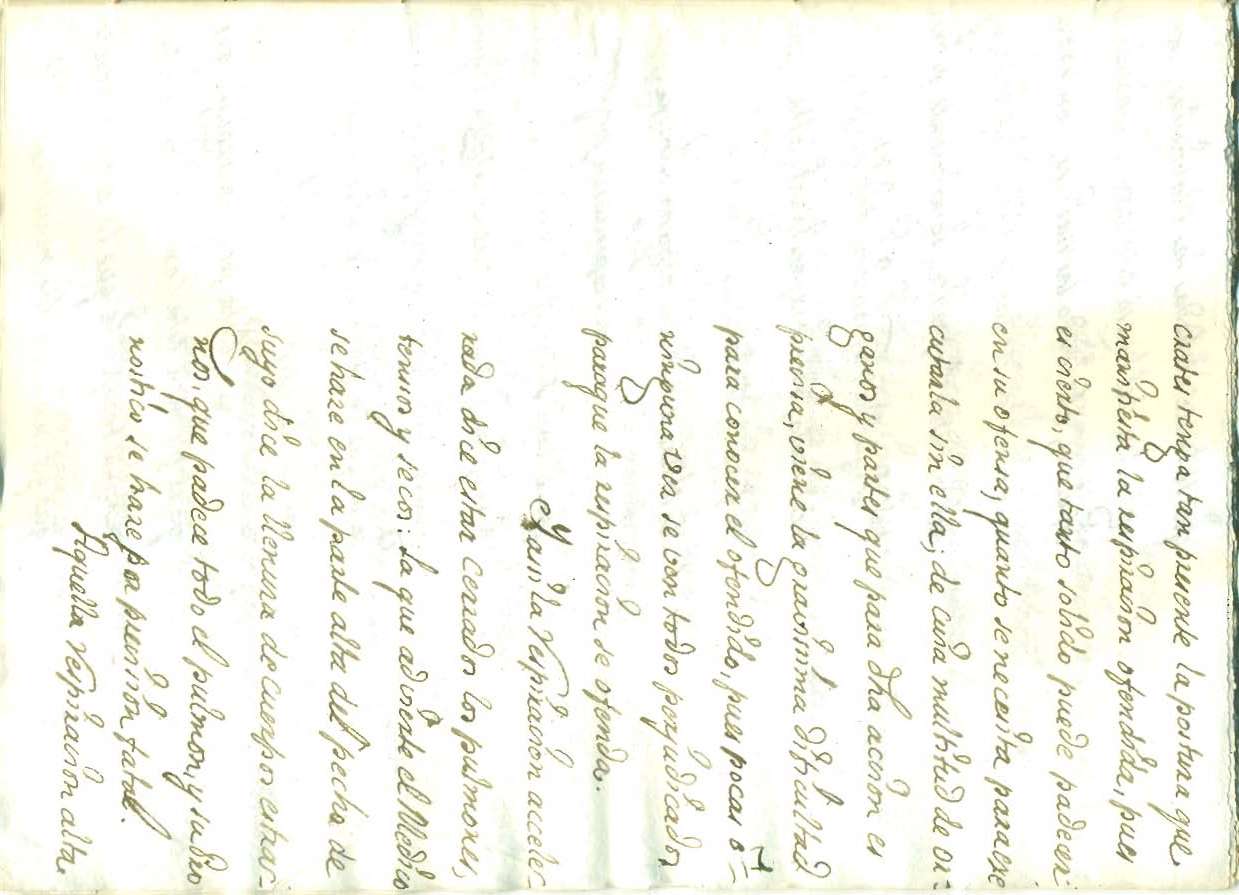 crates tenga tan presente la postura que
manifiesta la respiracion ofendida, pues
es cierto, que tanto solido puede padecer
en su ofensa, quanto se necesita para exe
cutarla sin ella; de cuia multitud de or=
ganos y partes que para dha accion es
precisa, viene la gravisima dificultad
para conocer el ofendido, pues pocas ó
ninguna vez se von todos perjudicados
paraque la respiracion se ofenda.
Assi la respiracion accele-
rada dice estar cerrados los pulmones,
tensos y secos: la que advierte el Medico
se hare en la parte alta del pecho de
suyo dice la llenura de cuerpos estra-
ños, que padece todo el pulmon, y su dro
nostico se hare por precision fatal.
Aquella respiracion alta